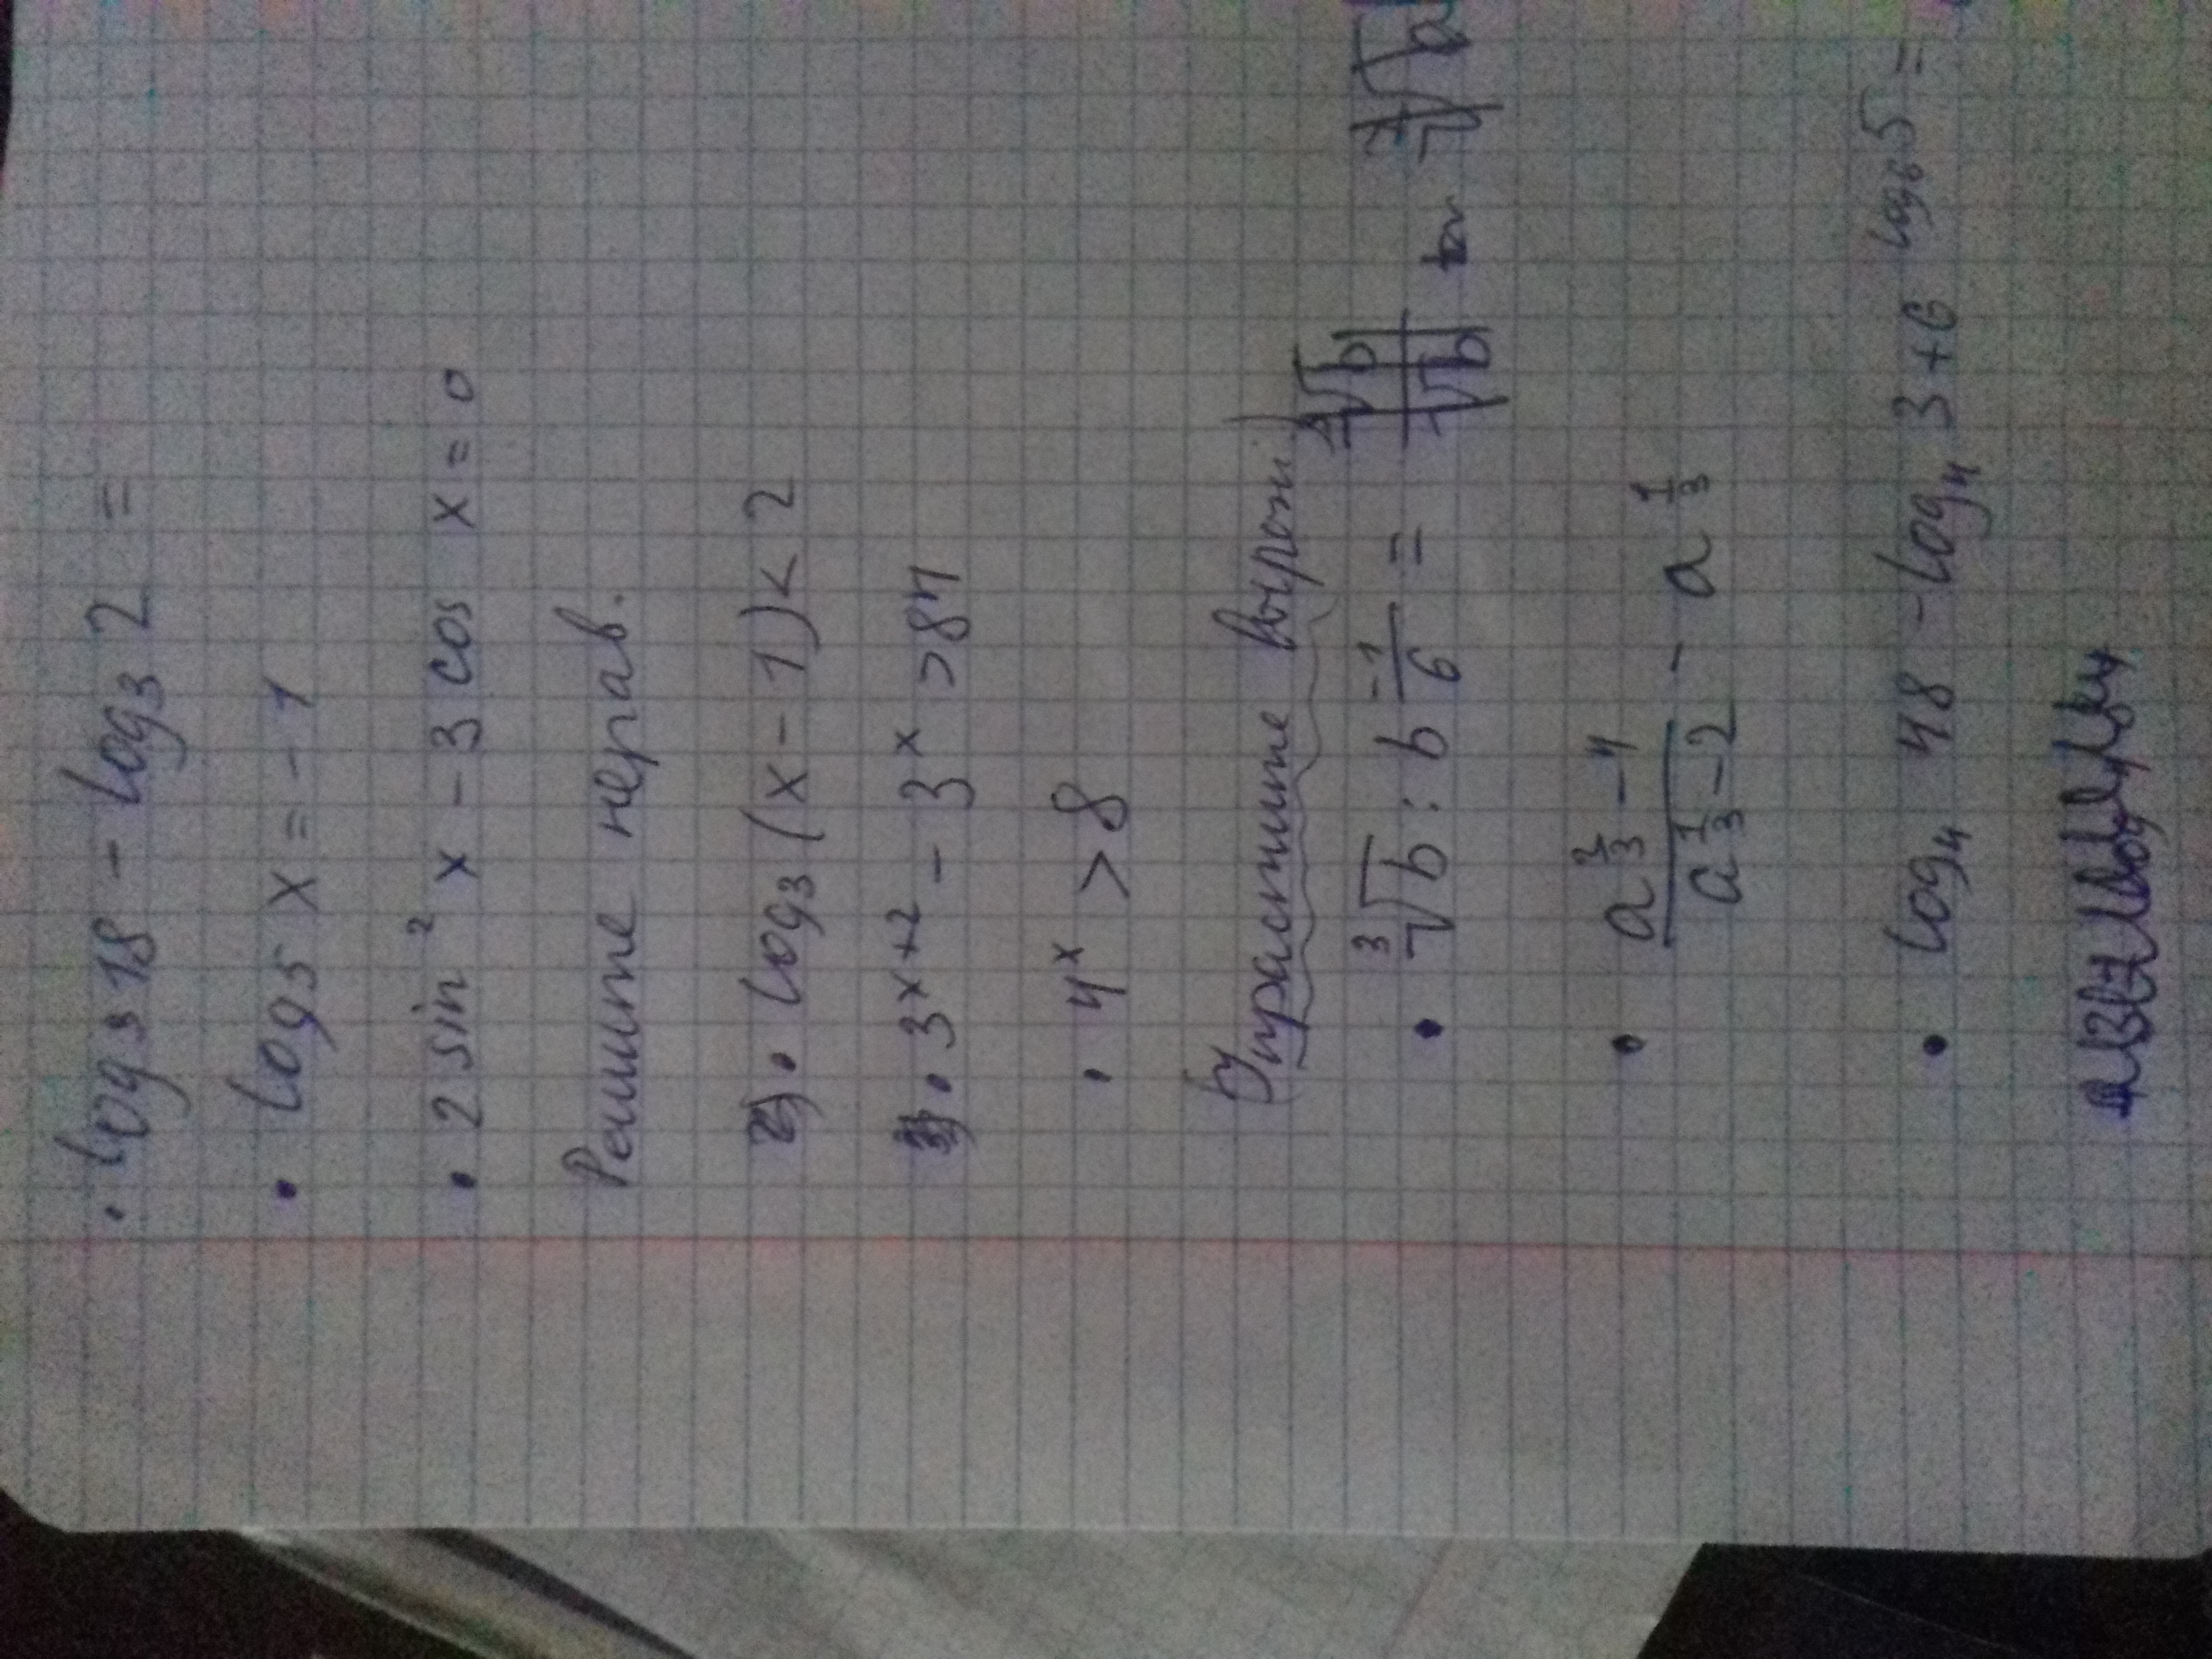 • log₃ 18 - log₃ 2 =
• log₅ x = -1
• 2 sin² x - 3 cos x = 0
Решите нерав.
2) • log₃ (x - 1) < 2
3) • 3ˣ⁺² - 3ˣ > 8
• 4ˣ > 8
Упрастите
• ³√b : b^(-1/6) =
• (a^(2/3) - 4)/(a^(1/3) - 2) - a^(1/3)
• log₄ 48 - log₄ 3 + 6^(log₆ 5) =